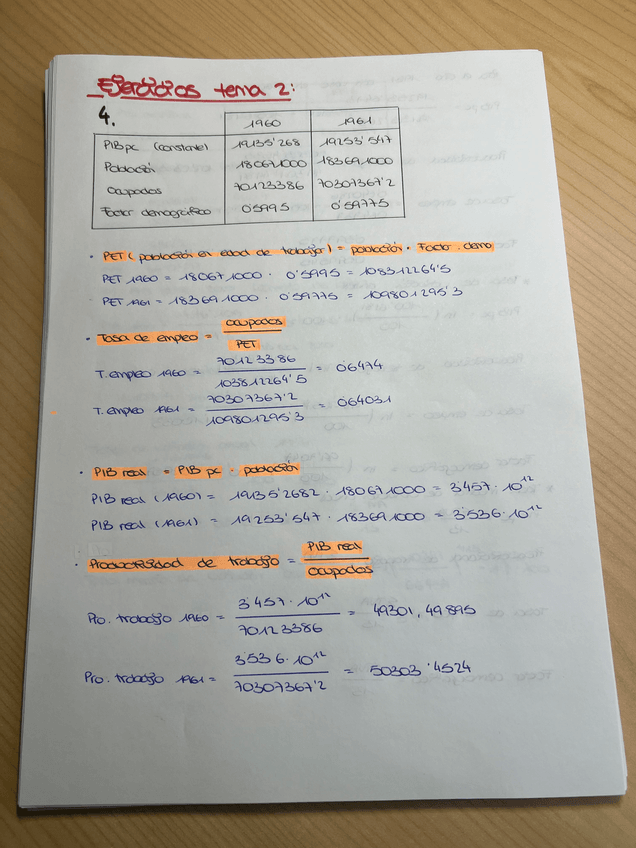 Ejercicios tema 2:
4.
1960 1961
PIBpc (constante) 19135'268 19253'547
Población 180671000 183691000
Ocupados 70123386 70307367'2
Factor demográfico 0'5995 0'59775
· PET (población en edad de trabajar) = población · Factor. demo
PET 1960 = 180671000 · 0'5995 = 108312264'5
PET 1961 = 183691000 · 0'59775 = 109801295'3
· Tasa de empleo = ocupados / PET
T. empleo 1960 = 70123386 / 103812264'5 = 0'6474
T. empleo 1961 = 70307367'2 / 109801295'3 = 0'64031
· PIB real = PIB pc · población
PIB real (1960) = 19135'2682 · 180671000 = 3'457 · 10¹²
PIB real (1961) = 19253'547 · 183691000 = 3'536 · 10¹²
· Productividad de trabajo = PIB real / ocupados
Pro. trabajo 1960 = 3'457 · 10¹² / 70123386 = 49301,49895
Pro. trabajo 1961 = 3'536 · 10¹² / 70307367'2 = 50303'4524